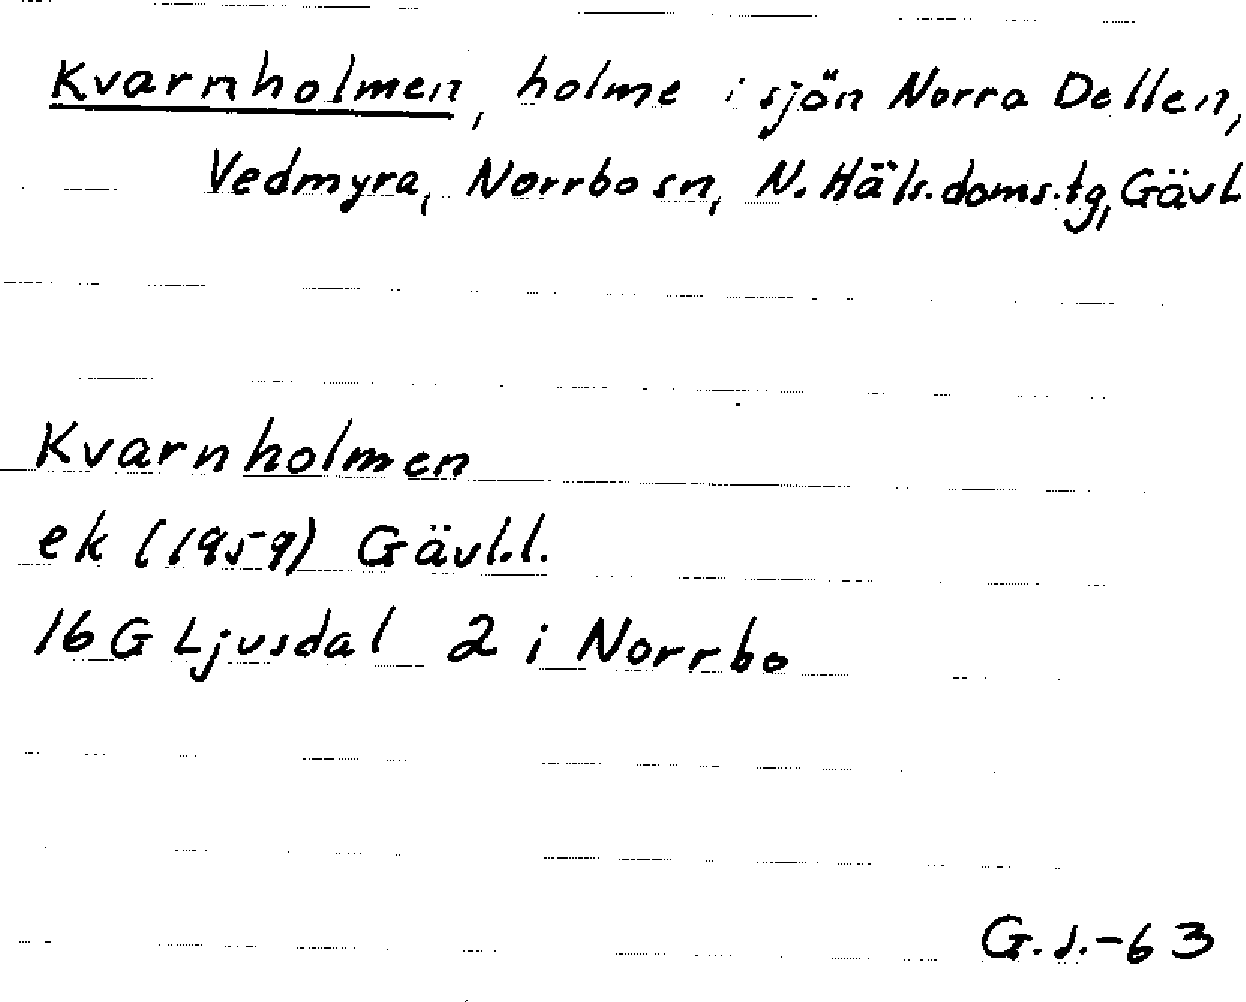 Kvarnholmen, holme i sjön Norra Dellen,
Vedmyra, Norrbo sn, N. Häls. doms.tg, Gävl
Kvarnholmen
ek (1959) Gävl.l.
16 G Ljusdal 2 i Norrbo
G.s.-63